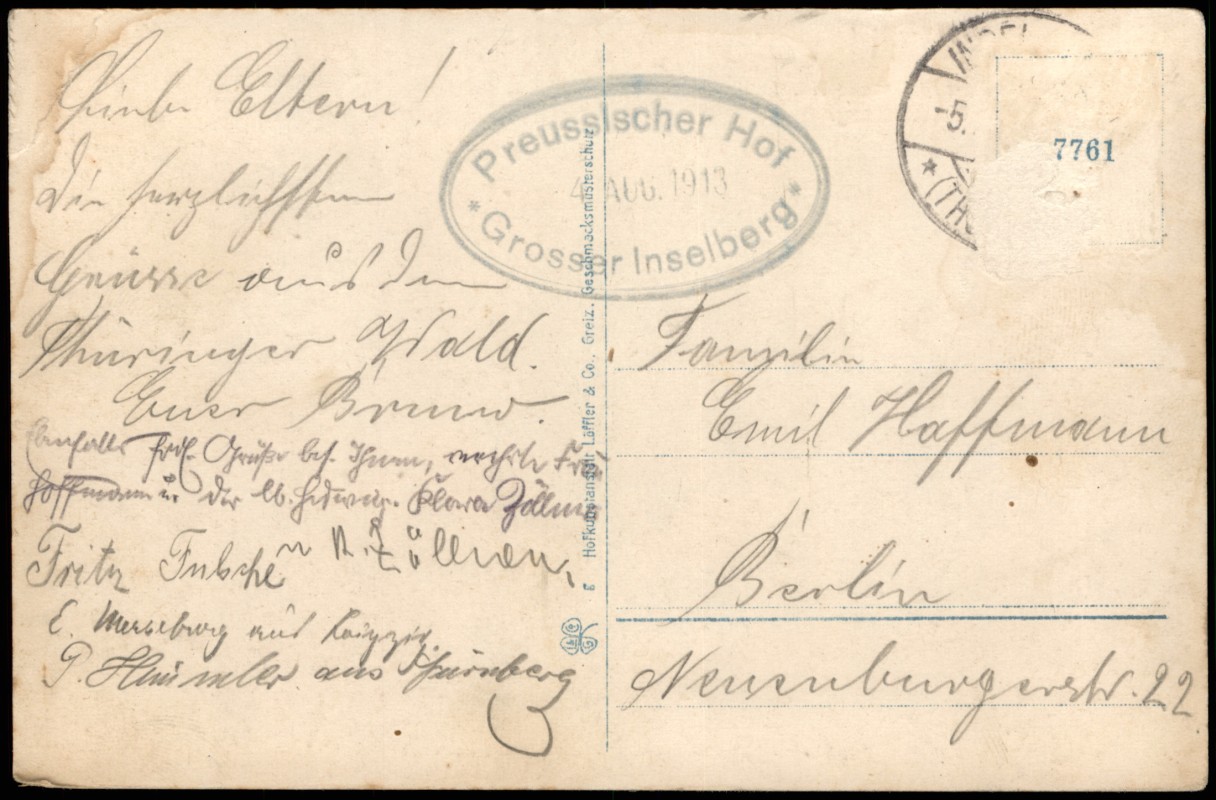 Liebe Eltern!
Die herzlichsten
Grüsse aus dem
Thüringer Wald.
Euer Bruno.
Ebenfalls frdl. Grüße bes. Ihnen, verehrte Frau
Hoffmann u. der lb. Hedwig. Klara Zöllner
Fritz u. R. Zöllner.
E. Merseburg aus Leipzig.
P. Hümmler aus Nürnberg
Preussischer Hof
4. AUG. 1913
* Grosser Inselberg *
Hofkunstanstalt Löffler & Co., Greiz. Geschmacksmusterschutz
INSEL
5.
* (TH
7761
Familie
Emil Hoffmann
Berlin
Neuenburgerstr. 22